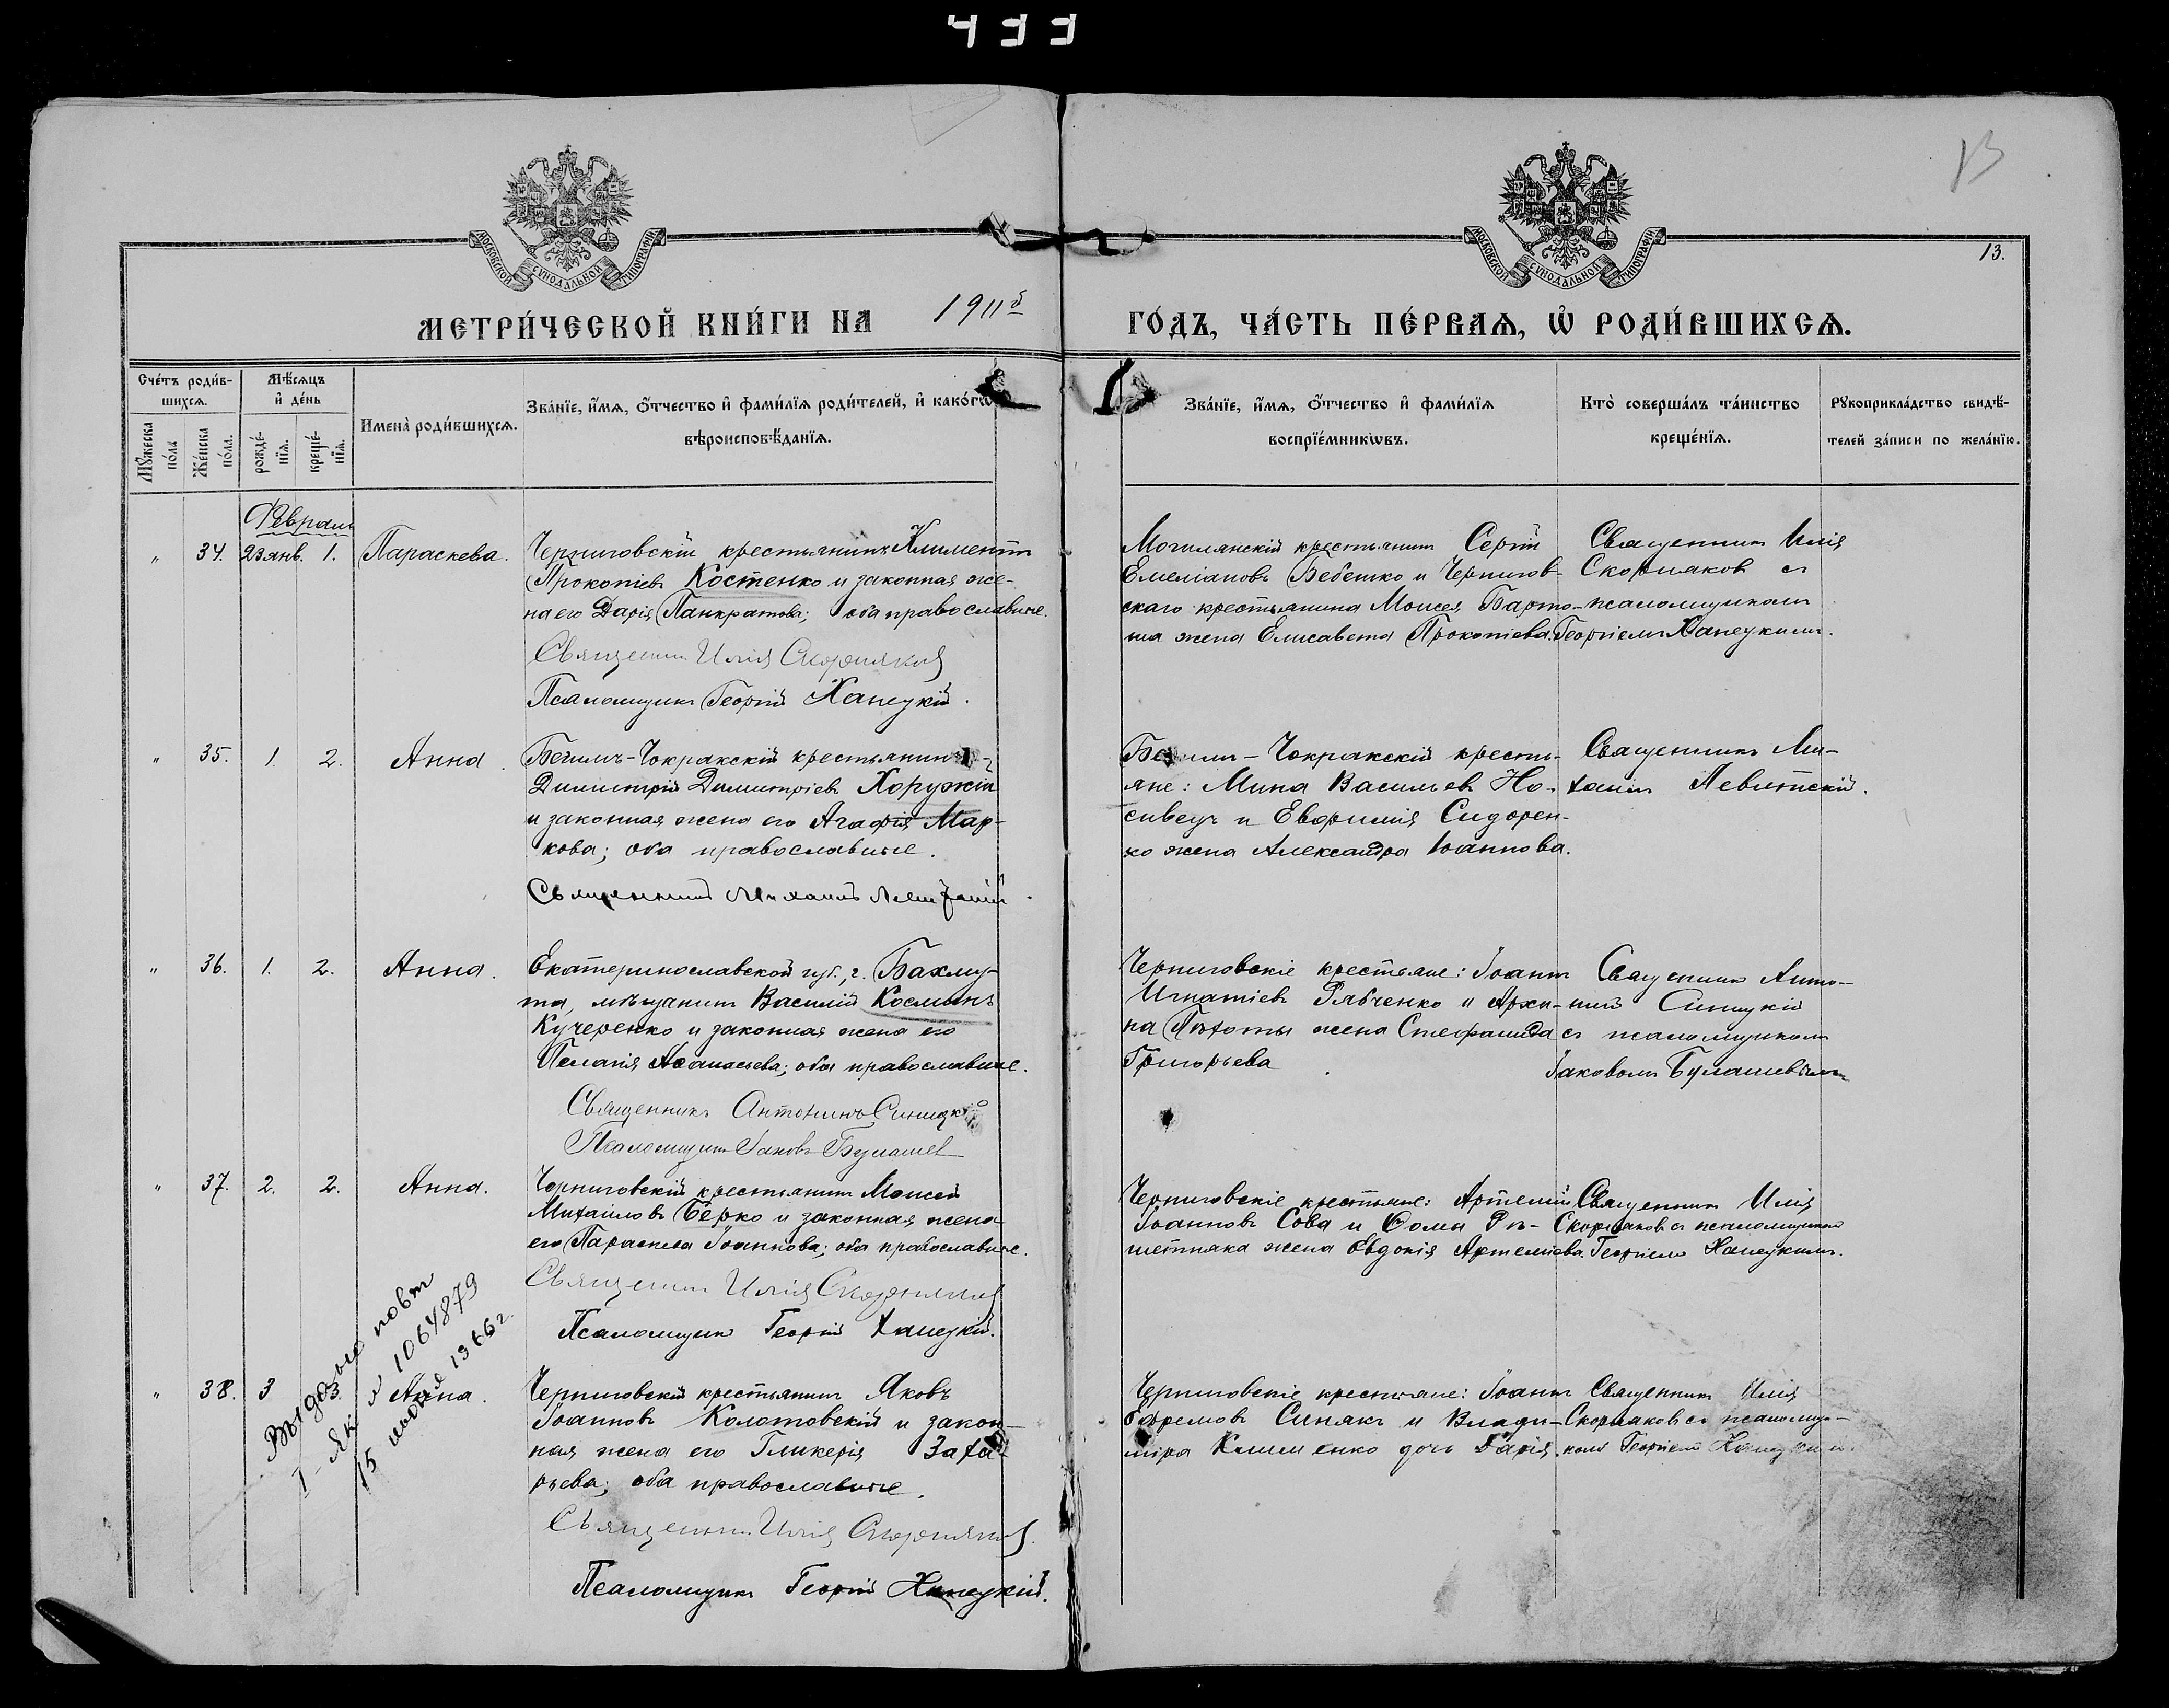 433
13
13.
МОСКОВСКОЙ СѴНОДАЛЬНОЙ ТИПОГРАФІИ
МОСКОВСКОЙ СѴНОДАЛЬНОЙ ТИПОГРАФІИ
МЕТРИ́ЧЕСКОЙ КНИ́ГИ НА 1911й ГО́ДЪ, ЧА́СТЬ ПЕ́РВАѦ, Ѡ҆ РОДИ́ВШИХСѦ.
Сче́тъ роди́в-
шихсѧ.
Мꙋ́жеска по́ла
Же́нска по́ла.
Мѣ́сѧцъ
и҆ де́нь
рожде́-
нїѧ.
креще́-
нїѧ.
И҆мена̀ роди́вшихсѧ.
Зва́нїе, и҆́мѧ, ѻ҆́тчество и҆ фами́лїѧ роди́телей, и҆ како́гѡ
вѣроисповѣ́данїѧ.
Зва́нїе, и҆́мѧ, ѻ҆́тчество и҆ фами́лїѧ
воспрїе́мникѡвъ.
Кто̀ соверша́лъ та́инство
креще́нїѧ.
Рꙋкоприкла́дство свидѣ́-
телей за́писи по жела́нїю.
Февраль
" 34. 23 янв. 1. Параскева.
Черниговскій крестьянинъ Климентъ
Прокопіевъ Костенко и законная же-
на его Дарія Панкратова; оба православные.
Священникъ Илія Скорняковъ
Псаломщикъ Георгій Ханецкій.
Могилянскій крестьянинъ Сергій
Емеліановъ Бебешко и Чернигов-
скаго крестьянина Моисея Барто-
ша жена Елисавета Прокопіева.
Священникъ Илія
Скорняковъ съ
псаломщикомъ
Георгіемъ Ханецкимъ.
" 35. 1. 2. Анна.
Бегимъ-Чокракскій крестьянинъ
Димитрій Димитріевъ Хоружій
и законная жена его Агафія Мар-
кова; оба православные.
Священникъ Михаилъ Левитскій.
Бегимъ-Чокракскій кресть-
яне: Мина Васильевъ Но-
сивецъ и Евфимія Сидорен-
ко жена Александра Іоаннова.
Священникъ Ми-
хаилъ Левитскій.
" 36. 1. 2. Анна.
Екатеринославской губ., г. Бахму-
та, мѣщанинъ Василій Косминъ
Кучеренко и законная жена его
Пелагія Аѳанасьева; оба православные.
Священникъ Антонинъ Синицкій
Псаломщикъ Іаковъ Булашев
Черниговскіе крестьяне: Іоаннъ
Игнатіевъ Рябченко и Архи-
па Пѣхоты жена Стефанида
Григорьева
Священникъ Анто-
ній Синицкій
съ псаломщикомъ
Іаковомъ Булашевымъ
" 37. 2. 2. Анна.
Черниговскій крестьянинъ Моисей
Михаиловъ Берко и законная жена
его Параскева Іоаннова; оба православные.
Священникъ Илія Скорняковъ
Псаломщикъ Георгій Ханецкій.
Черниговскіе крестьяне: Артемій
Іоанновъ Сова и Ѳомы Рѣ-
шетняка жена Евдокія Артеміева.
Священникъ Илія
Скорняковъ съ псаломщикомъ
Георгіемъ Ханецкимъ.
" 38. 3 3. Анна.
Черниговскій крестьянинъ Яковъ
Іоанновъ Колотовскій и закон-
ная жена его Гликерія Заха-
рьева; оба православные.
Священникъ Илія Скорняковъ.
Псаломщикъ Георгій Ханецкій.
Черниговскіе крестьяне: Іоаннъ
Ефремовъ Синякъ и Влади-
міра Клименко дочь Дарія.
Священникъ Илія
Скорняковъ съ псаломщи-
комъ Георгіемъ Ханецкимъ.
Выдано повт
1064879
15 1966 г.